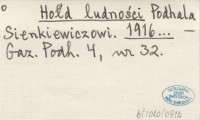 Hołd ludności Podhala
Sienkiewiczowi. 1916... —
Gaz. Podh. 4, nr 32.